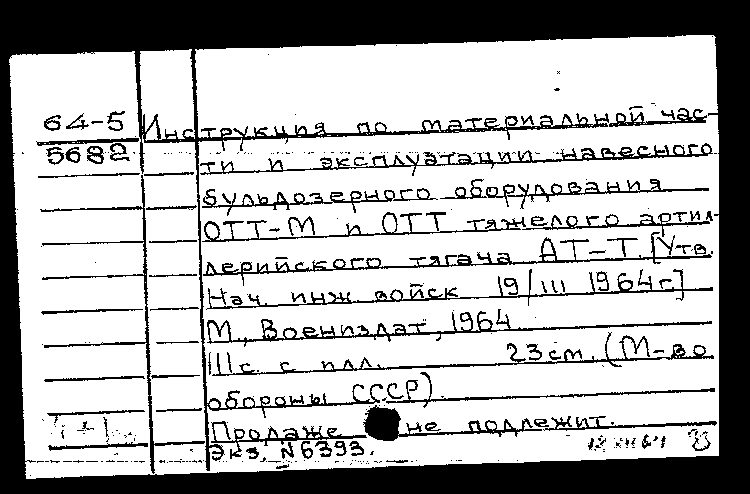 64-5
5682
Инструкция по материальной час-
ти и эксплуатации навесного
бульдозерного оборудования
ОТТ-М и ОТТ тяжелого артил-
лерийского тягача АТ-Т. [Утв.
Нач. инж войск 19/III 1964г]
М., Воениздат, 1964
111с. с илл. 23см. (М-во
обороны СССР)
Продаже не подлежит.
Экз. N6393.